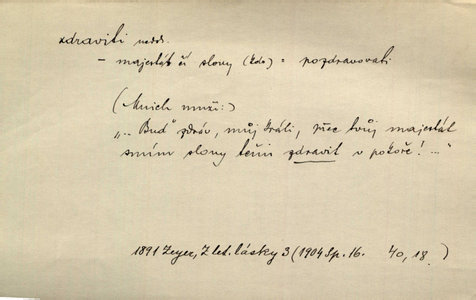 zdraviti nedok.
– majestát čí slovy (kdo) = pozdravovati
(Mnich mluví:)
„… Buď zdráv, můj králi, tvůj majestát
smím slovy těmi zdravit v pokoře! …“
1891 Zeyer, Z let. lásky 3 (1904 Sp. 16. 40, 18)